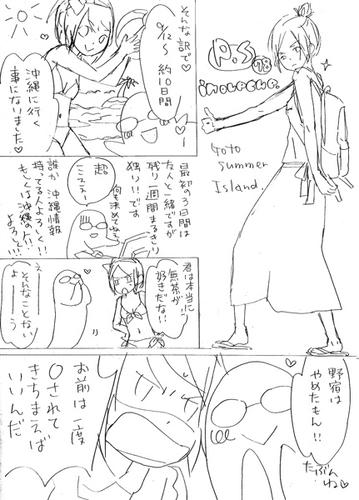 P.S
78
inoueke.
Go to
summer
Island.
そんな訳で
9/12～約10日間
沖縄に行く
事になりました♡
最初の3日間は
友人と一緒ですが
残り一週間まるきり
独り!!です
超
何も決めてねぇ
誰か沖縄情報
持ってる人よろしく!!
もしくは沖縄の人!!
よろしく!!
君は本当に
無茶が
好きだな!!
えー
そんなことない
よーう
野宿は
やめたもん!!
たぶん
ね♡
お前は一度
○されて
きちまえば
いいんだ